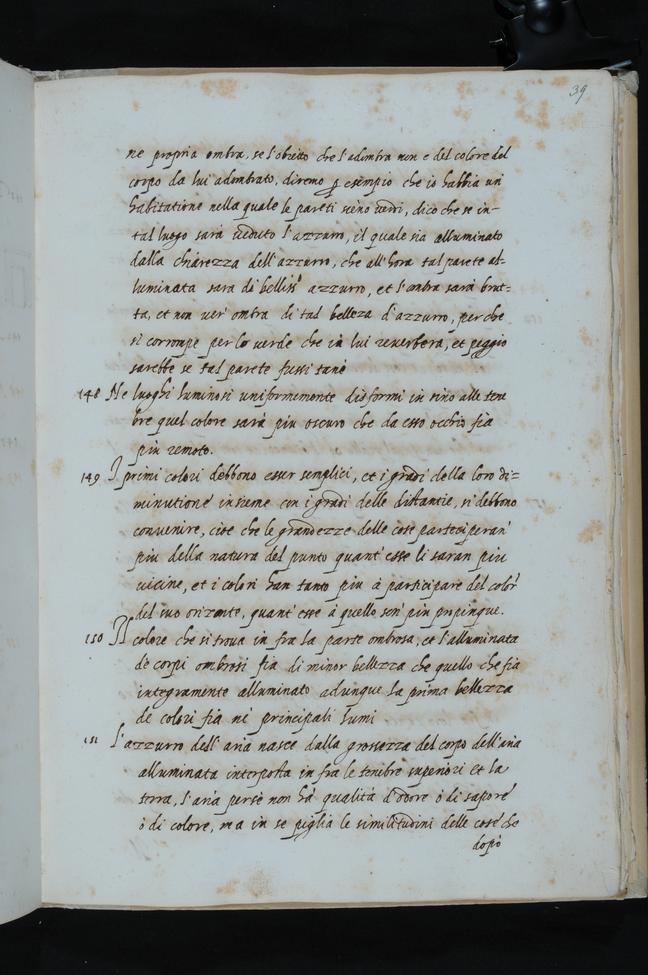 39
ne propria ombra, se l'obietto che l'adombra non e del colore del
corpo da lui adombrato, diremo p esempio che io habbia un
habitatione nella quale le pareti sieno verdi, dico che se in-
tal luogo sarà veduto l'azzurro, il quale sia alluminato
dalla chiarezza dell'azzurro, che all'hora tal parete al-
luminata sara di belliss.º azzurro, et l'ombra sarà brut-
ta, et non ver' ombra di tal belleza d'azzurro, perche
si corrompe per lo verde che in lui reverbera, et peggio
sarebbe se tal parete fussi tanè
148 Ne luoghi luminosi uniformemente disformi in sino alle tene
bre quel colore sarà piu oscuro che da esso occhio fia
piu remoto.
149 I primi colori debbono esser semplici, et i gradi della loro di=
minutione insieme con i gradi delle distantie, si debbono
convenire, cioe che le grandezze delle cose parteciperan'
piu della natura del punto quant' esse li saran piu
vicine, et i colori han tanto piu à participare del color'
del suo orizonte, quant' esse à quello son' piu propinque.
150 Il colore che si trova in fra la parte ombrosa, et l'alluminata
de corpi ombrosi fia di minor bellezza che quello che fia
integramente alluminato adunque la prima bellezza
de colori fia ne principali lumi
151 L'azzurro dell'aria nasce dalla grossezza del corpo dell'aria
alluminata interposta in fra le tenebre superiori et la
terra, l'aria persè non hà qualità d'odore ò di sapore
ò di colore, ma in se piglia le similitudini delle cose che
dopò